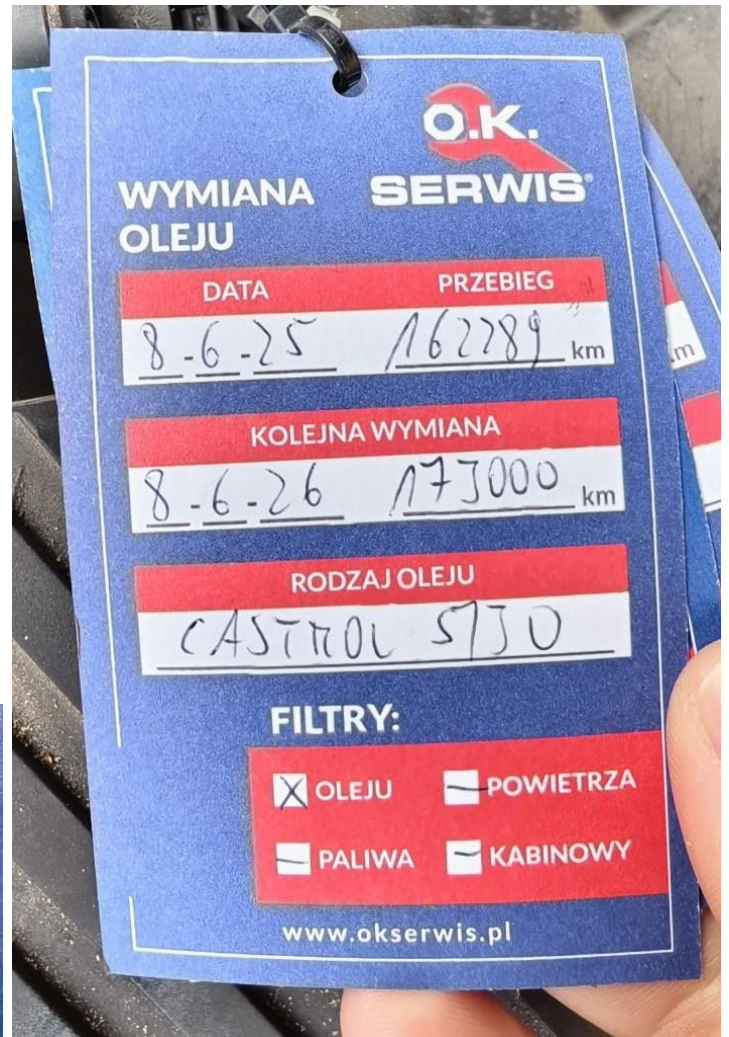 O.K.
SERWIS®
WYMIANA
OLEJU
DATA PRZEBIEG
8-6-25 162289 km
KOLEJNA WYMIANA
8-6-26 173000 km
RODZAJ OLEJU
CASTROL 5/30
FILTRY:
OLEJU POWIETRZA
PALIWA KABINOWY
www.okserwis.pl
km